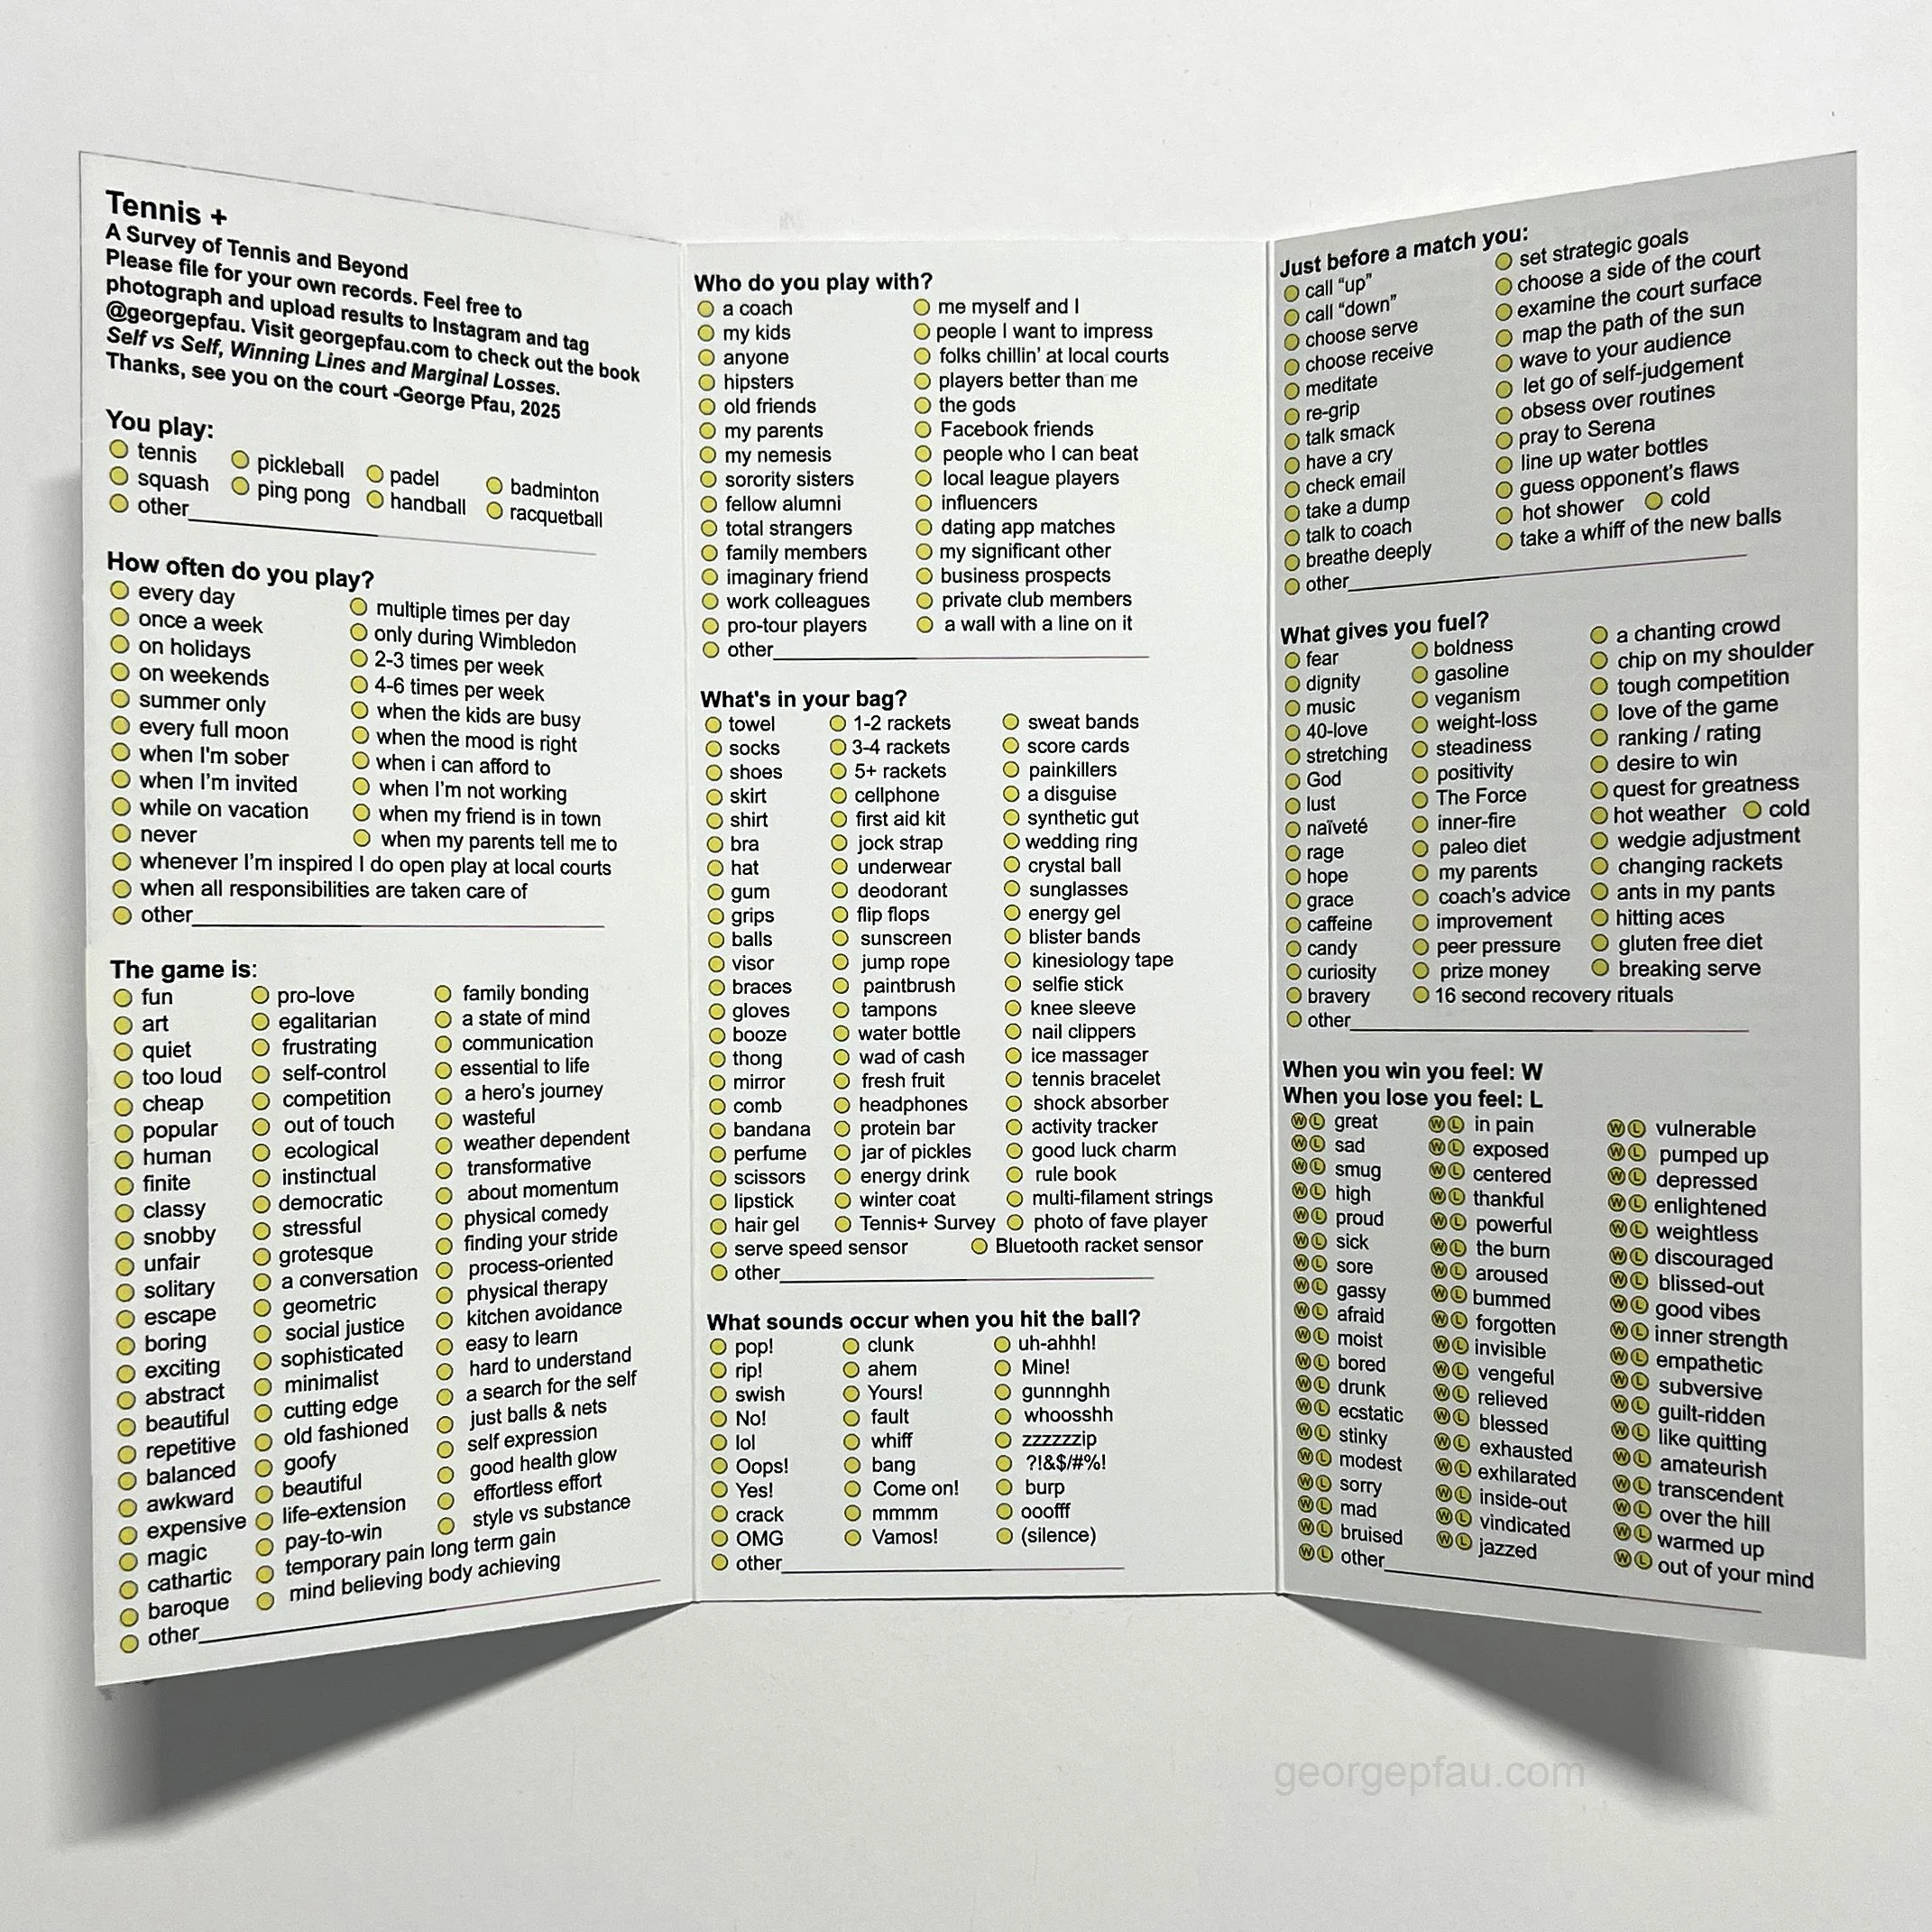 Tennis +
A Survey of Tennis and Beyond
Please file for your own records. Feel free to
photograph and upload results to Instagram and tag
@georgepfau. Visit georgepfau.com to check out the book
Self vs Self, Winning Lines and Marginal Losses.
Thanks, see you on the court -George Pfau, 2025
You play:
tennis pickleball padel badminton
squash ping pong handball racquetball
other
How often do you play?
every day
once a week
on holidays
on weekends
summer only
every full moon
when I'm sober
when I'm invited
while on vacation
never
multiple times per day
only during Wimbledon
2-3 times per week
4-6 times per week
when the kids are busy
when the mood is right
when i can afford to
when I'm not working
when my friend is in town
when my parents tell me to
whenever I'm inspired I do open play at local courts
when all responsibilities are taken care of
other
The game is:
fun
art
quiet
too loud
cheap
popular
human
finite
classy
snobby
unfair
solitary
escape
boring
exciting
abstract
beautiful
repetitive
balanced
awkward
expensive
magic
cathartic
baroque
pro-love
egalitarian
frustrating
self-control
competition
out of touch
ecological
instinctual
democratic
stressful
grotesque
a conversation
geometric
social justice
sophisticated
minimalist
cutting edge
old fashioned
goofy
beautiful
life-extension
pay-to-win
temporary pain long term gain
mind believing body achieving
family bonding
a state of mind
communication
essential to life
a hero's journey
wasteful
weather dependent
transformative
about momentum
physical comedy
finding your stride
process-oriented
physical therapy
kitchen avoidance
easy to learn
hard to understand
a search for the self
just balls & nets
self expression
good health glow
effortless effort
style vs substance
other
Who do you play with?
a coach
my kids
anyone
hipsters
old friends
my parents
my nemesis
sorority sisters
fellow alumni
total strangers
family members
imaginary friend
work colleagues
pro-tour players
me myself and I
people I want to impress
folks chillin' at local courts
players better than me
the gods
Facebook friends
people who I can beat
local league players
influencers
dating app matches
my significant other
business prospects
private club members
a wall with a line on it
other
What's in your bag?
towel
socks
shoes
skirt
shirt
bra
hat
gum
grips
balls
visor
braces
gloves
booze
thong
mirror
comb
bandana
perfume
scissors
lipstick
hair gel
1-2 rackets
3-4 rackets
5+ rackets
cellphone
first aid kit
jock strap
underwear
deodorant
flip flops
sunscreen
jump rope
paintbrush
tampons
water bottle
wad of cash
fresh fruit
headphones
protein bar
jar of pickles
energy drink
winter coat
Tennis+ Survey
sweat bands
score cards
painkillers
a disguise
synthetic gut
wedding ring
crystal ball
sunglasses
energy gel
blister bands
kinesiology tape
selfie stick
knee sleeve
nail clippers
ice massager
tennis bracelet
shock absorber
activity tracker
good luck charm
rule book
multi-filament strings
photo of fave player
serve speed sensor Bluetooth racket sensor
other
What sounds occur when you hit the ball?
pop!
rip!
swish
No!
lol
Oops!
Yes!
crack
OMG
clunk
ahem
Yours!
fault
whiff
bang
Come on!
mmmm
Vamos!
uh-ahhh!
Mine!
gunnnghh
whoosshh
zzzzzzip
?!&$/#%!
burp
ooofff
(silence)
other
Just before a match you:
call "up"
call "down"
choose serve
choose receive
meditate
re-grip
talk smack
have a cry
check email
take a dump
talk to coach
breathe deeply
set strategic goals
choose a side of the court
examine the court surface
map the path of the sun
wave to your audience
let go of self-judgement
obsess over routines
pray to Serena
line up water bottles
guess opponent's flaws
hot shower cold
take a whiff of the new balls
other
What gives you fuel?
fear
dignity
music
40-love
stretching
God
lust
naïveté
rage
hope
grace
caffeine
candy
curiosity
bravery
boldness
gasoline
veganism
weight-loss
steadiness
positivity
The Force
inner-fire
paleo diet
my parents
coach's advice
improvement
peer pressure
prize money
16 second recovery rituals
a chanting crowd
chip on my shoulder
tough competition
love of the game
ranking / rating
desire to win
quest for greatness
hot weather cold
wedgie adjustment
changing rackets
ants in my pants
hitting aces
gluten free diet
breaking serve
other
When you win you feel: W
When you lose you feel: L
W L great
W L sad
W L smug
W L high
W L proud
W L sick
W L sore
W L gassy
W L afraid
W L moist
W L bored
W L drunk
W L ecstatic
W L stinky
W L modest
W L sorry
W L mad
W L bruised
W L other
W L in pain
W L exposed
W L centered
W L thankful
W L powerful
W L the burn
W L aroused
W L bummed
W L forgotten
W L invisible
W L vengeful
W L relieved
W L blessed
W L exhausted
W L exhilarated
W L inside-out
W L vindicated
W L jazzed
W L vulnerable
W L pumped up
W L depressed
W L enlightened
W L weightless
W L discouraged
W L blissed-out
W L good vibes
W L inner strength
W L empathetic
W L subversive
W L guilt-ridden
W L like quitting
W L amateurish
W L transcendent
W L over the hill
W L warmed up
W L out of your mind
georgepfau.com